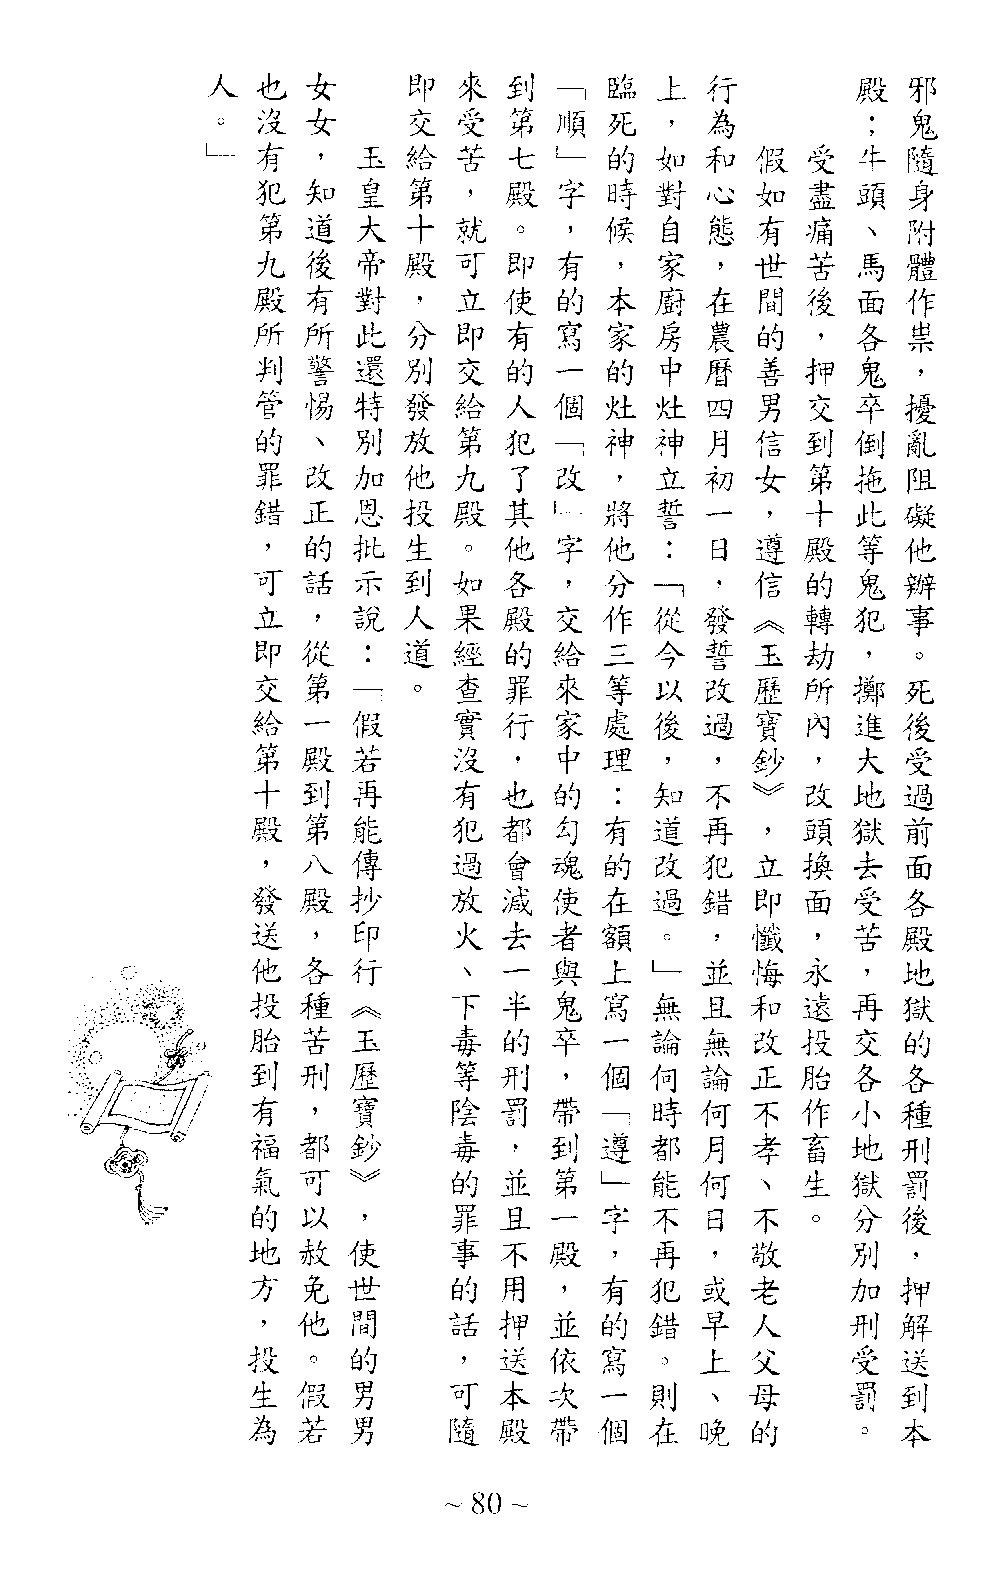 邪鬼隨身附體作祟，擾亂阻礙他辦事。死後受過前面各殿地獄的各種刑罰後，押解送到本
殿；牛頭、馬面各鬼卒倒拖此等鬼犯，擲進大地獄去受苦，再交各小地獄分別加刑受罰。
受盡痛苦後，押交到第十殿的轉劫所內，改頭換面，永遠投胎作畜生。
假如有世間的善男信女，遵信《玉歷寶鈔》，立即懺悔和改正不孝、不敬老人父母的
行為和心態，在農曆四月初一日，發誓改過，不再犯錯，並且無論何月何日，或早上、晚
上，如對自家廚房中灶神立誓：「從今以後，知道改過。」無論何時都能不再犯錯。則在
臨死的時候，本家的灶神，將他分作三等處理：有的在額上寫一個「遵」字，有的寫一個
「順」字，有的寫一個「改」字，交給來家中的勾魂使者與鬼卒，帶到第一殿，並依次帶
到第七殿。即使有的人犯了其他各殿的罪行，也都會減去一半的刑罰，並且不用押送本殿
來受苦，就可立即交給第九殿。如果經查實沒有犯過放火、下毒等陰毒的罪事的話，可隨
即交給第十殿，分別發放他投生到人道。
玉皇大帝對此還特別加恩批示說：「假若再能傳抄印行《玉歷寶鈔》，使世間的男男
女女，知道後有所警惕、改正的話，從第一殿到第八殿，各種苦刑，都可以赦免他。假若
也沒有犯第九殿所判管的罪錯，可立即交給第十殿，發送他投胎到有福氣的地方，投生為
人。」
~ 80 ~